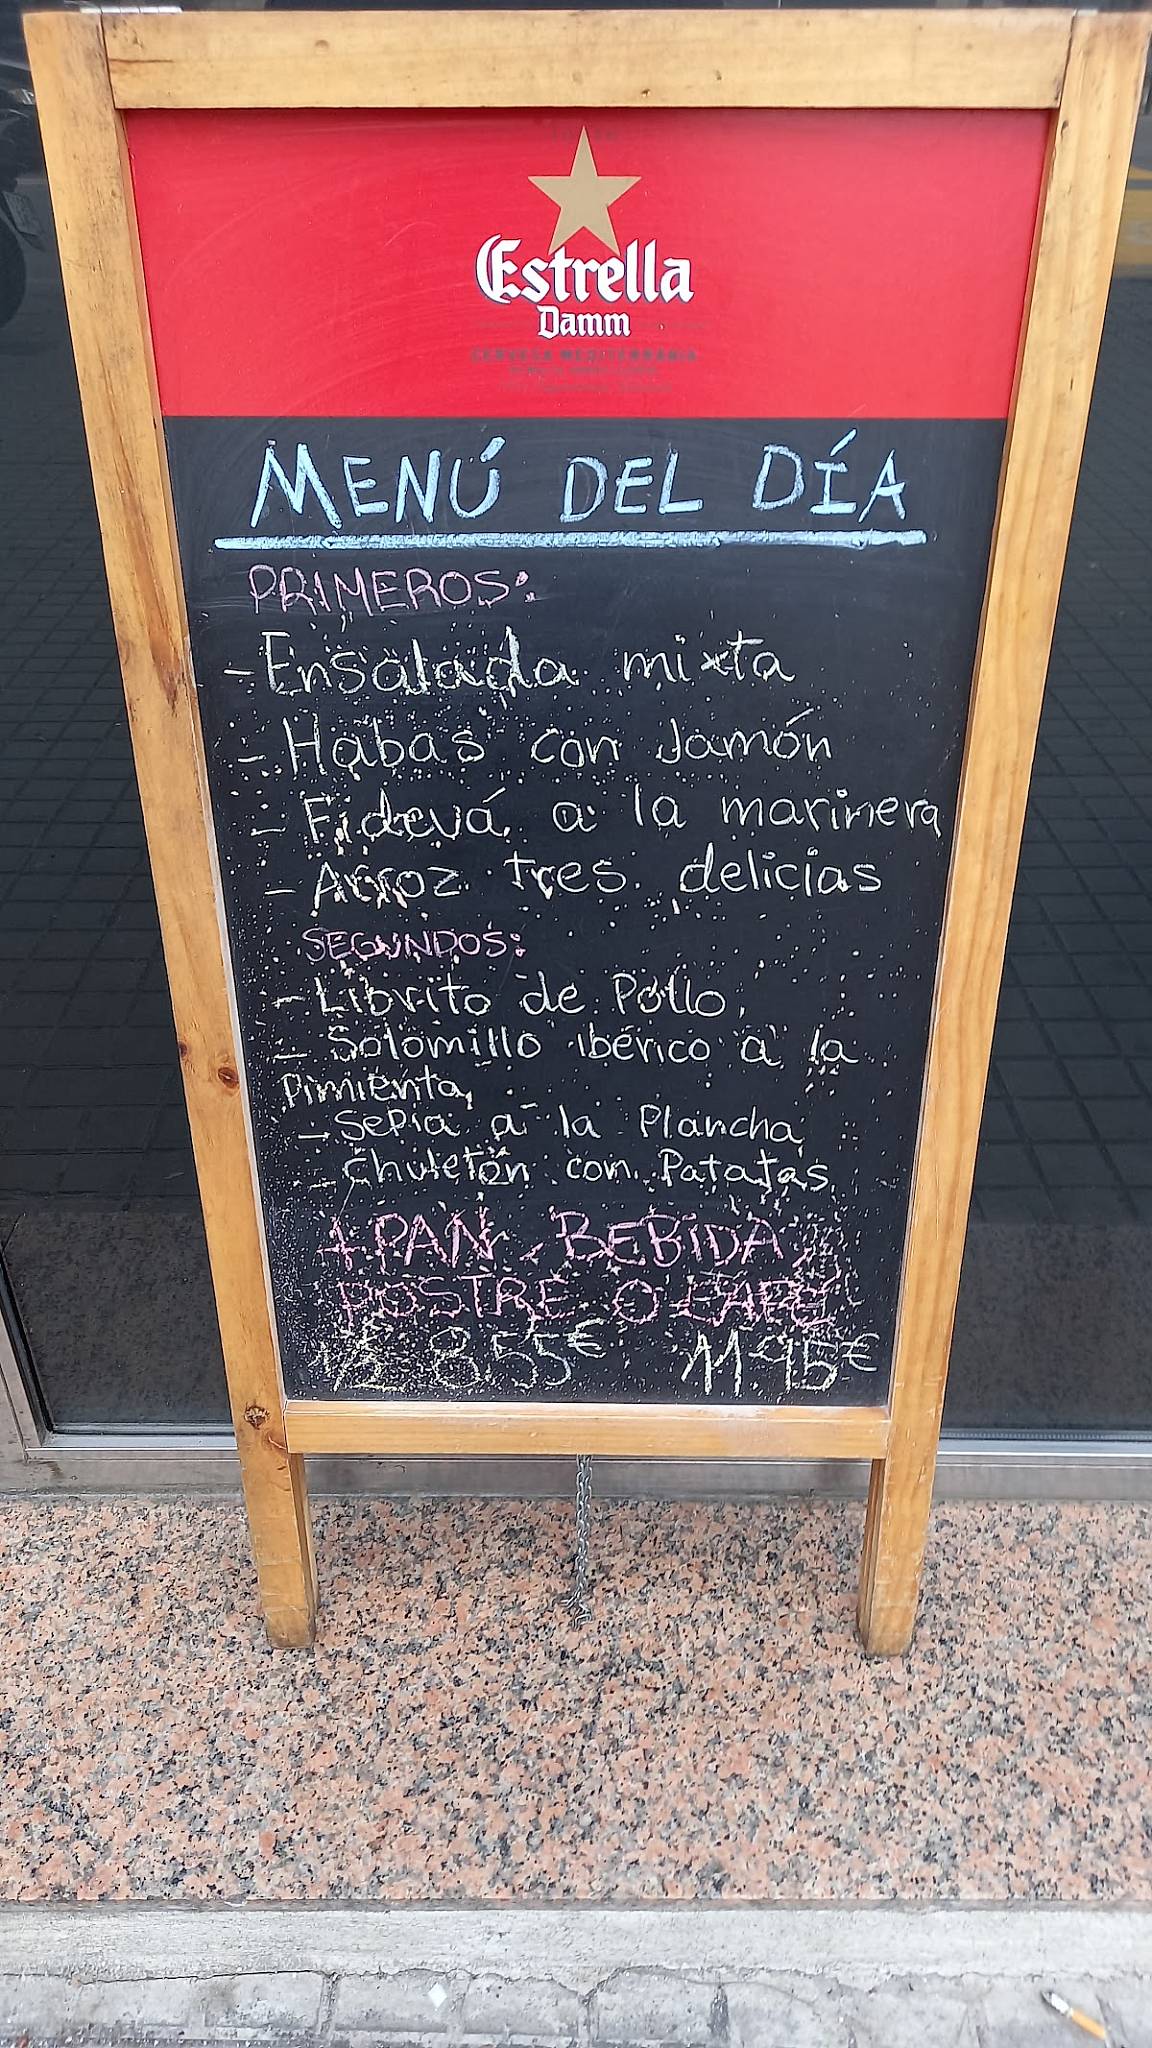 Estrella
Damm
CERVESA MEDITERRÀNIA
MENÚ DEL DÍA
PRIMEROS:
- Ensalada mixta
- Habas con Jamón
- Fidevá a la marinera
- Arroz tres delicias
SEGUNDOS:
- Librito de Pollo
- Solomillo ibérico a la
Pimienta
- Sepia a la Plancha
- Chuletón con Patatas
+ PAN, BEBIDA,
POSTRE O CAFÉ
1/2 8'55€ 11'95€